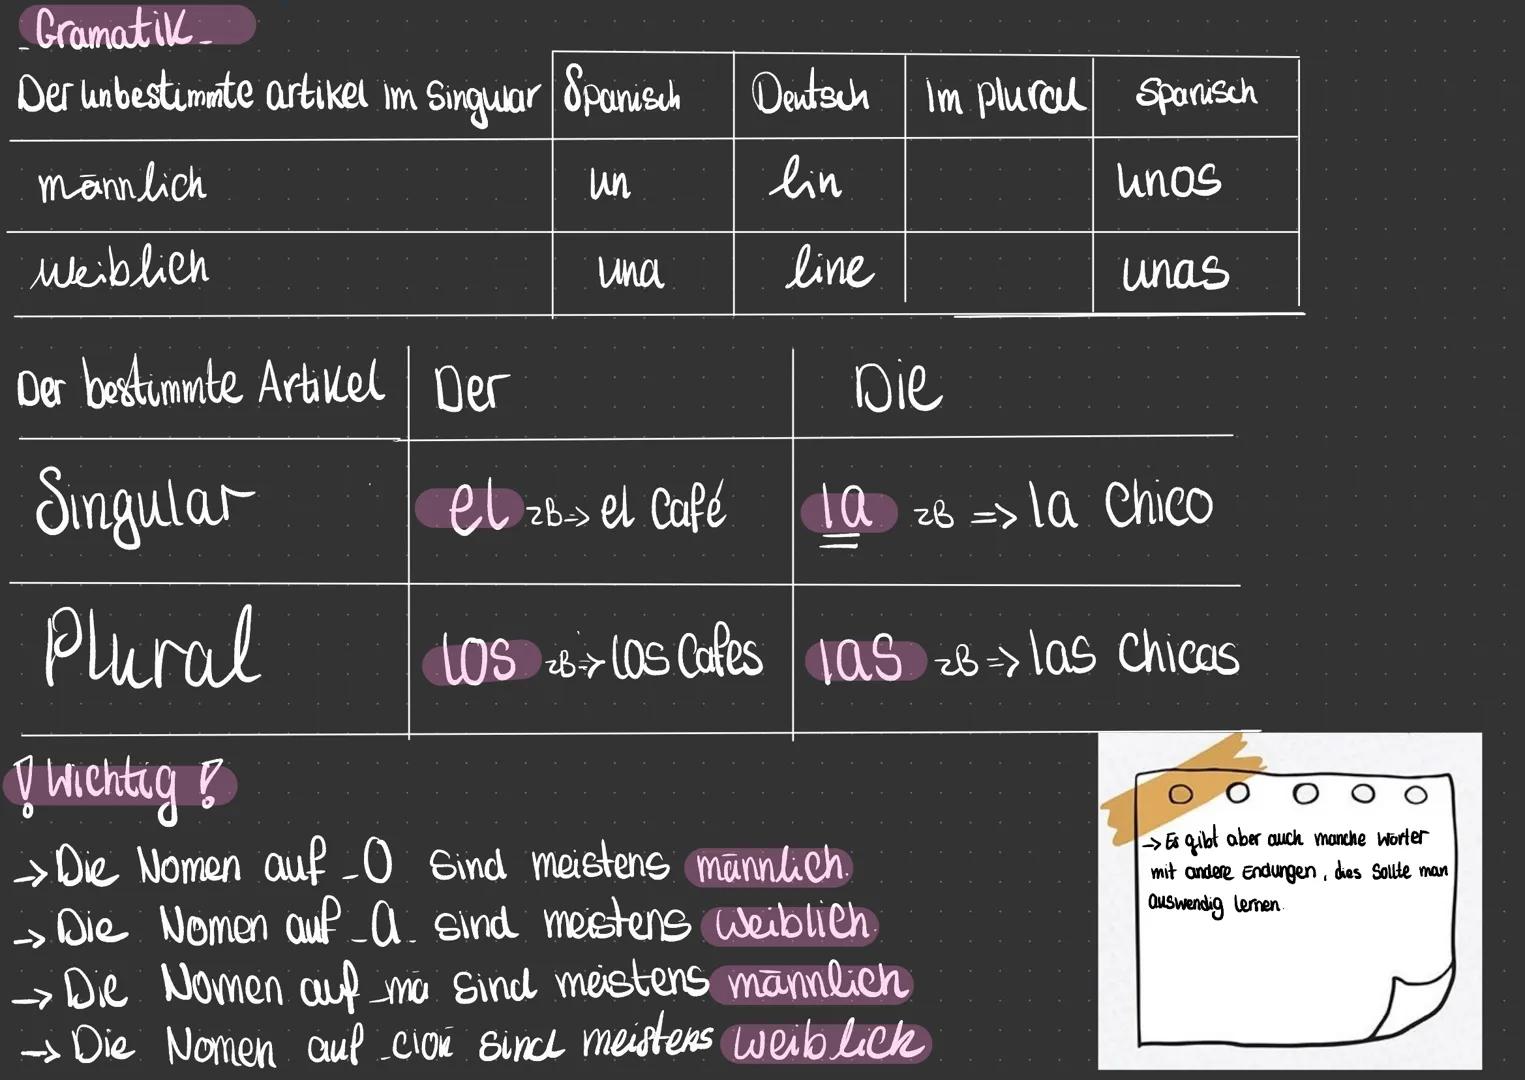 Gramatik
Der unbestimmte artikel im Singular Spanisch Deutsch Im plural Spanisch
männlich un ein unos
weiblich una eine unas
Der bestimmte Artikel Der Die
Singular el zB-> el Café la zB => la Chico
Plural los zB=> los Cafes las zB => las Chicas
! Wichtig !
-> Die Nomen auf -O sind meistens männlich.
-> Die Nomen auf -a. sind meistens weiblich.
-> Die Nomen auf -ma sind meistens männlich
-> Die Nomen auf -cion sind meistens weiblich
-> Es gibt aber auch manche Wörter
mit andere Endungen, dies sollte man
auswendig lernen.